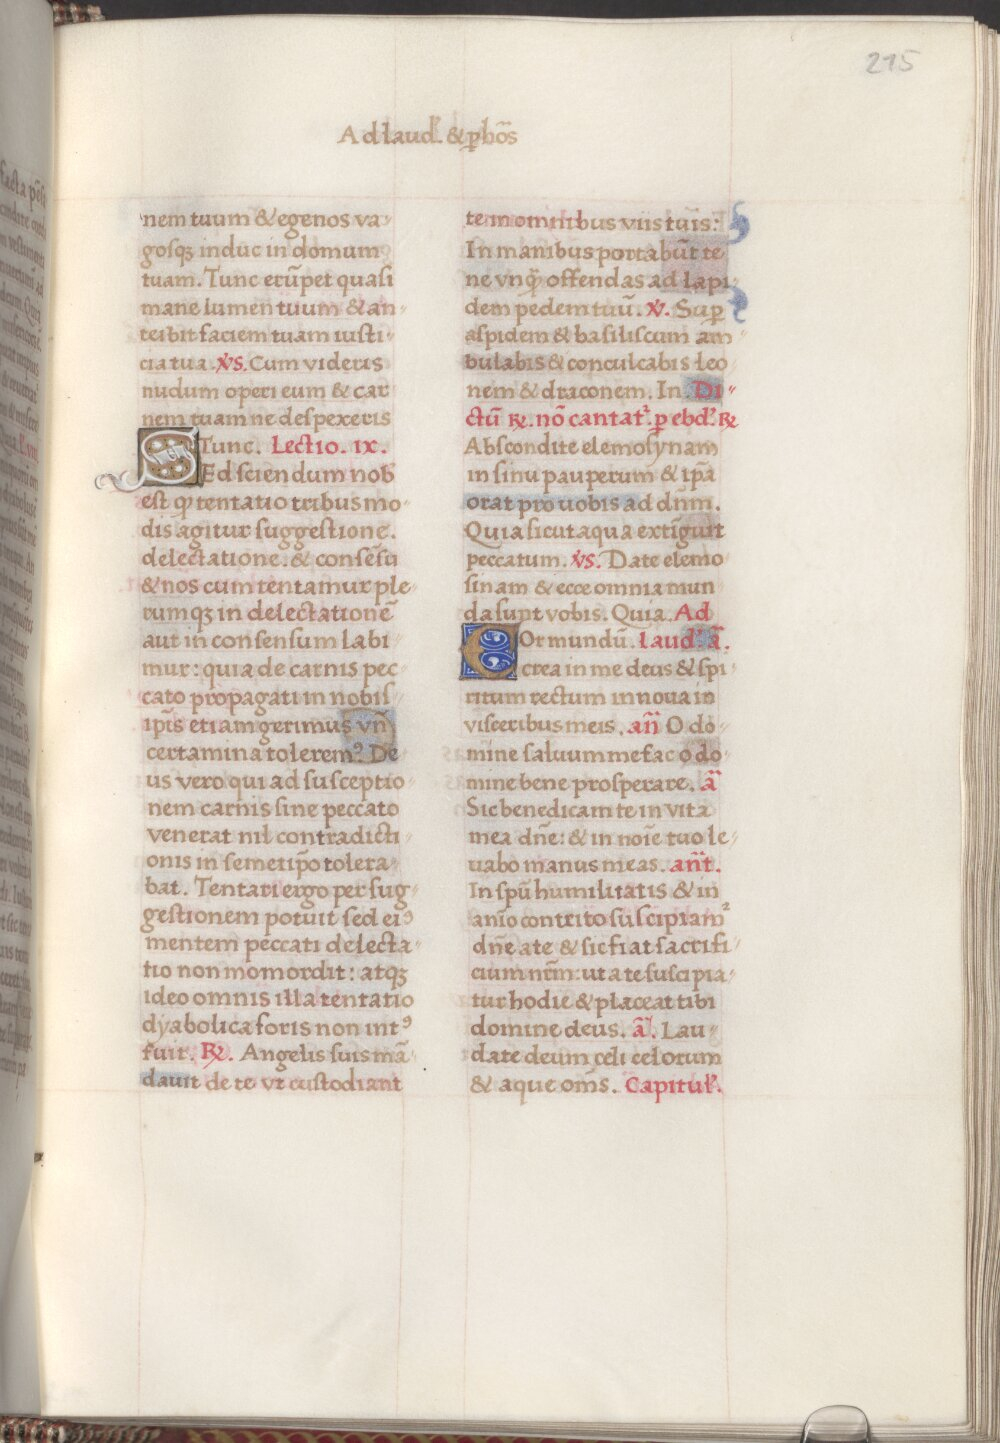 215
Ad laud'. & p̱hōs
nem tuum & egenos va-
gosqꝫ induc in domum
tuam. Tunc erūpet quasi
mane lumen tuum & an-
teibit faciem tuam iusti-
cia tua. ℣s. Cum videris
nudum operi eum & car
nem tuam ne despexeris
Tunc. Lectio. ix.
SEd sciendum nob̄
est ꝙ tentatio tribus mo-
dis agitur suggestione.
delectatione: & consēsu
& nos cum tentamur ple-
rumqꝫ in delectationē
aut in consensum labi
mur: quia de carnis pec-
cato propagati in nobis
ip̄is etiam gerimus vn̄
certamina toleremꝰ De-
us vero qui ad susceptio
nem carnis sine peccato
venerat nil contradicti-
onis in semetip̄o tolera-
bat. Tentari ergo per sug-
gestionem potuit sed eiꝰ
mentem peccati delecta-
tio non momordit: atqꝫ
ideo omnis illa tentatio
dyabolica foris non intꝰ
fuit. ℟. Angelis suis mā
dauit de te vt custodiant
te in omnibus viis tuis:
In manibus portabūt te
ne vnq̄ offendas ad lapi-
dem pedem tuū. ℣. Suꝑ
aspidem & basiliscum am-
bulabis & conculcabis leo
nem & draconem. In. Di-
ctū ℟. nō cantat². ꝑ ebd'. ℟
Abscondite elemosynam
in sinu pauperum & ip̄a
orat pro uobis ad dn̄m.
Quia sicut aqua extīguit
peccatum. ℣s. Date elemo
sinam & ecce omnia mun
da sunt vobis. Quia. Ad
COr mundū. laud'. a̅.
crea in me deus & spi-
ritum rectum innoua in
visceribus meis. an̄ O do-
mine saluum me fac o do-
mine bene prosperare. a̅
Sic benedicam te in vita
mea dn̄e: & in noīe tuo le-
uabo manus meas. an̄t.
In spū humilitatis & in
anīo contrito suscipiam²
dn̄e a te & sic fiat sacrifi-
cium nr̄m: ut a te suscipia-
tur hodie & placeat tibi
domine deus. a̅. Lau-
date deum celi celorum
& aque om̄s. Capitul'.